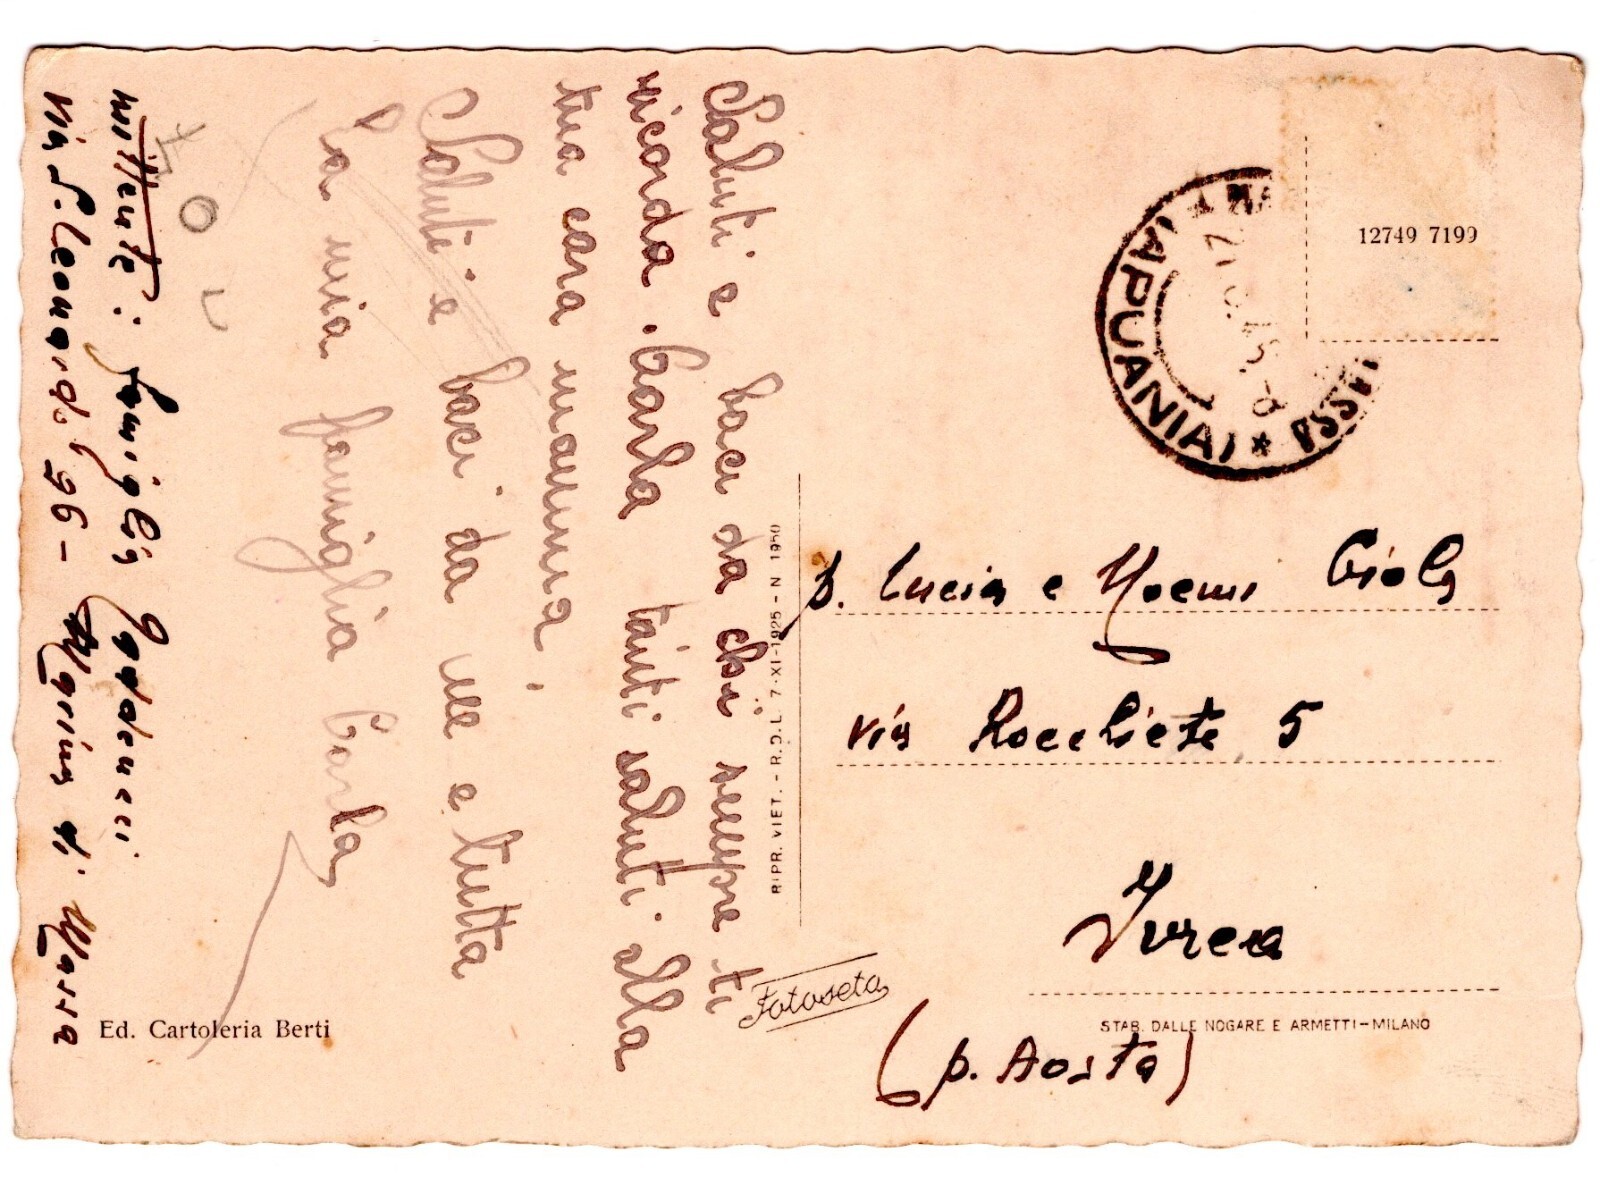 Saluti e baci da chi sempre ti
ricorda. Carla tanti saluti alla
tua cara mamma
Saluti e baci da me e tutta
la mia famiglia Carla
mittente: famiglia
via S. Leonardo 96 - Marina di Massa
Ed. Cartoleria Berti
RIPR. VIET. - R.D.L. 7-XI-1925 - N 1950
Fotoseta
12749 7199
MASSA
(APUANIA)
Lucia e Noemi
via Rocchiete 5
Ivrea
(p. Aosta)
STAB. DALLE NOGARE E ARMETTI - MILANO